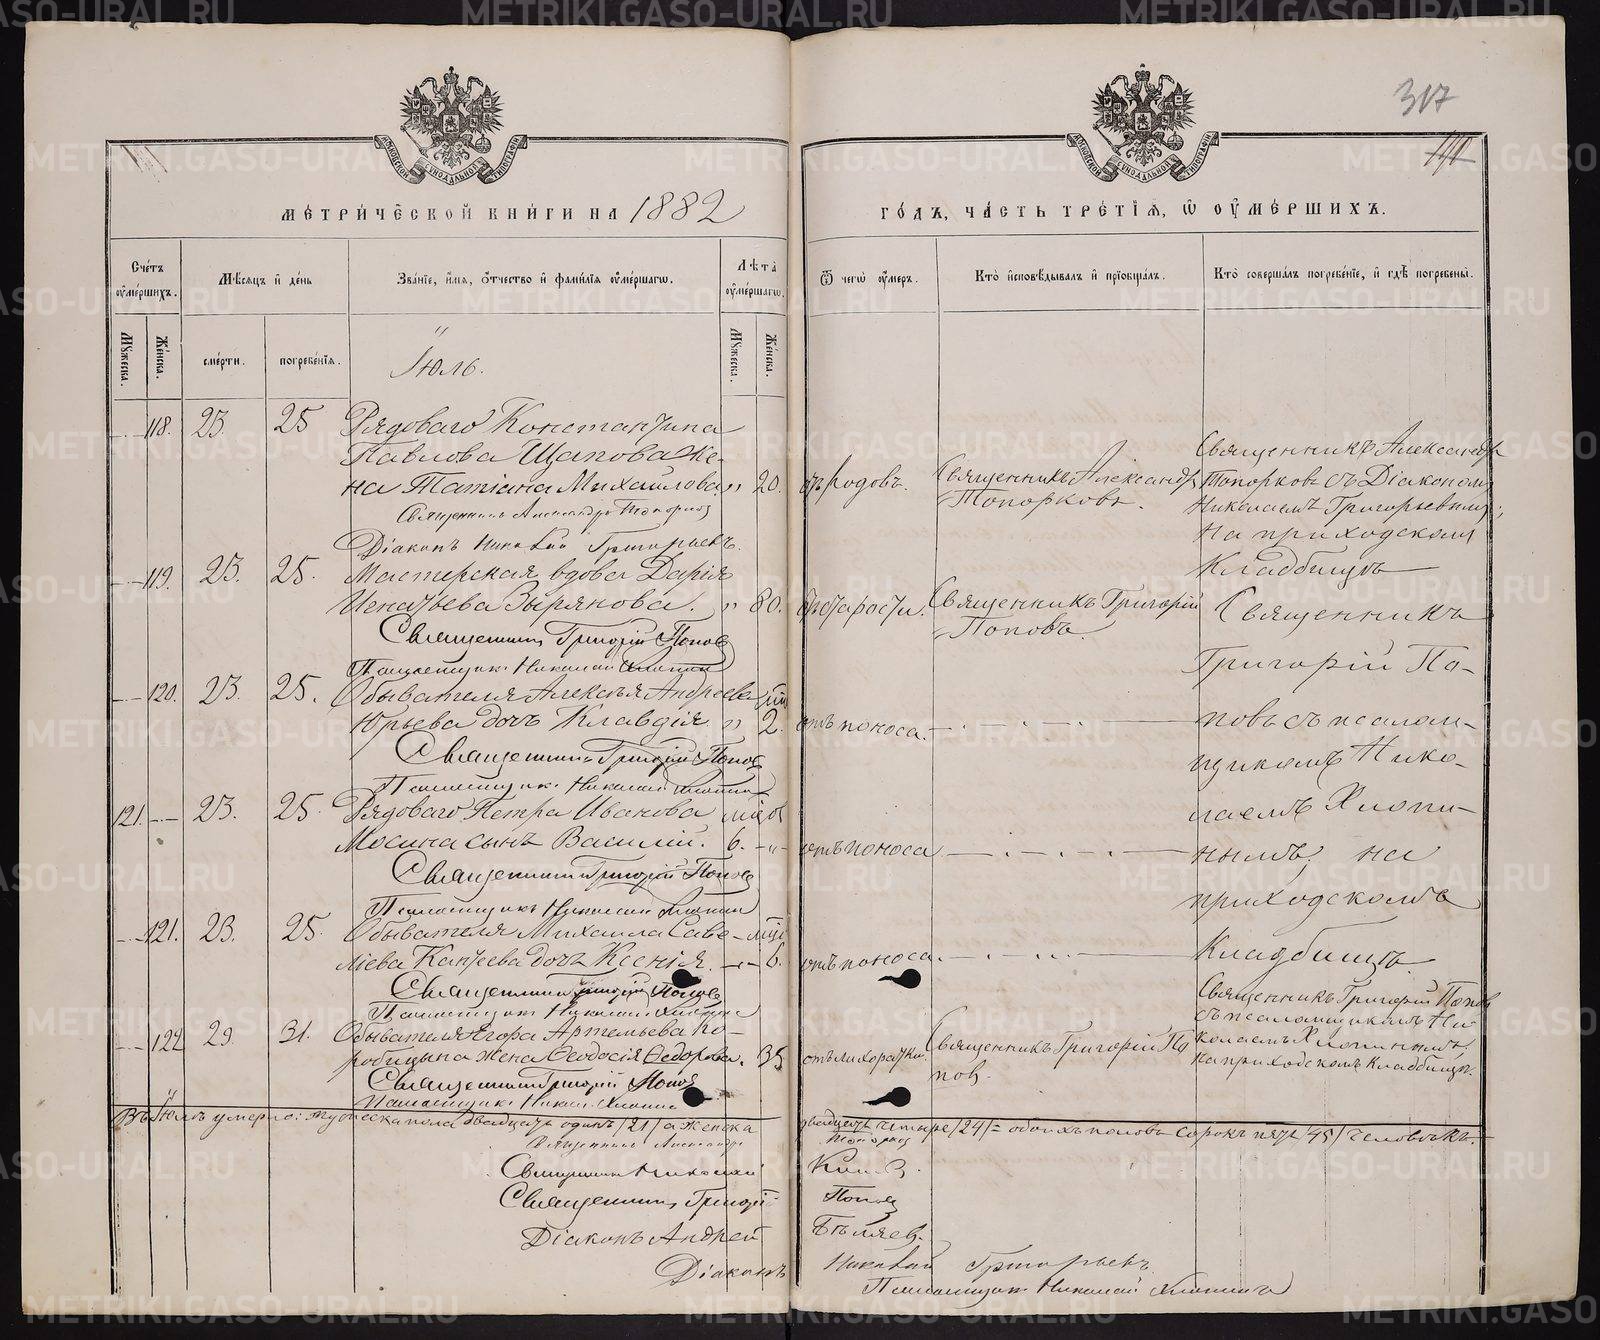 METRIKI.GASO-URAL.RU
317
МОСКОВСКОЙ СѴНОДАЛЬНОЙ ТИПОГРАФІИ
МЕТРИЧЕСКОЙ КНИГИ НА 1882
ГОДЪ, ЧАСТЬ ТРЕТІЯ, Ѿ ОУМЕРШИХЪ.
Счетъ оумершихъ.
Мѣсяцъ и день
Званіе, имя, отчество и фамилія оумершагѡ.
Лѣта оумершагѡ.
Ѿ чегѡ оумеръ.
Кто исповѣдывалъ и пріобщалъ.
Кто совершалъ погребеніе, и гдѣ погребены.
Мужеска.
Женска.
смерти.
погребенія.
Мужеска.
Женска.
Іюль.
118. 23. 25 Рядоваго Константина
Павлова Щапова же-
на Татіана Михайлова „ 20. отъ родовъ.
Священникъ Александръ Топорковъ
Діаконъ Николай Григорьевъ.
Священникъ Александръ
Топорковъ.
Священникъ Александръ
Топорковъ съ Діакономъ
Николаемъ Григорьевымъ;
на приходскомъ
кладбищѣ
119. 23. 25. Мастерская вдова Дарія
Игнатьева Зырянова. „ 80. отъ старости.
Священникъ Григорій Поповъ
Псаломщикъ Николай Хлопинъ
Священникъ Григорій
Поповъ.
120. 23. 25. Обывателя Алексѣя Андреева
Юрьева дочь Клавдія „ 2. отъ поноса.
Священникъ Григорій Поповъ
Псаломщикъ Николай Хлопинъ
121. 23. 25. Рядоваго Петра Иванова
Мосина сынъ Василій. 6. отъ поноса
Священникъ Григорій Поповъ
Псаломщикъ Николай Хлопинъ
121. 23. 25. Обывателя Михаила Саве-
ліева Кантеева дочь Ксенія. 6. отъ поноса.
Священникъ Григорій Поповъ
Псаломщикъ Николай Хлопинъ
Священникъ
Григорій По-
повъ съ псалом-
щикомъ Нико-
лаемъ Хлопи-
нымъ; на
приходскомъ
кладбищѣ.
122 29. 31. Обывателя Егора Артемьева Ко-
робицына жена Ѳеодосія Ѳедорова. 35 отъ лихорадки.
Священникъ Григорій Поповъ
Псаломщикъ Николай Хлопинъ
Священникъ Григорій По
повъ.
Священникъ Григорій Поповъ
съ псаломщикомъ Ни
колаемъ Хлопинымъ;
на приходскомъ кладбищѣ.
Въ Іюлѣ умерло: мужеска пола двадцать одинъ /21/ а женска двадцать четыре /24/ = обоихъ половъ сорокъ пять /45/ человѣкъ.
Священникъ Александръ Топорковъ
Священникъ Николай
Священникъ Григорій Поповъ
Діаконъ Андрей Бѣляевъ.
Діаконъ Николай Григорьевъ
Псаломщикъ Николай Хлопинъ